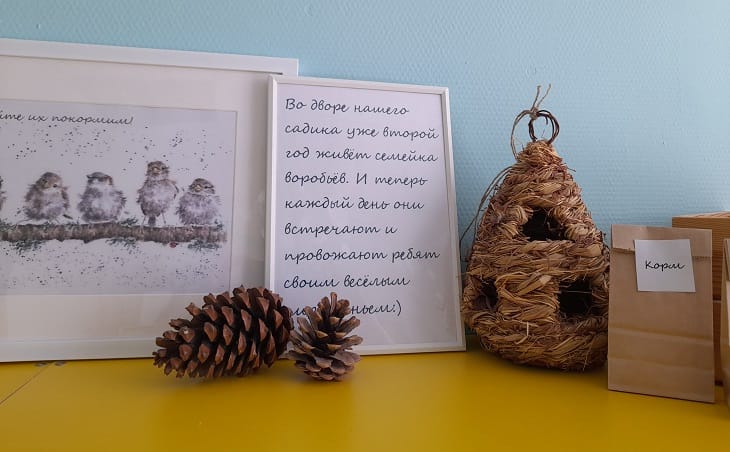 их покормим!
Во дворе нашего
садика уже второй
год живёт семейка
воробьёв. И теперь
каждый день они
встречают и
провожают ребят
своим весёлым
:)
Корм